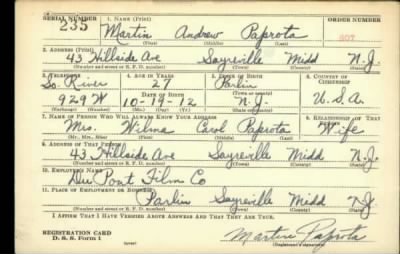 SERIAL NUMBER 1. NAME (Print) ORDER NUMBER
235 Martin Andrew Paprota 807
(First) (Middle) (Last)
2. ADDRESS (Print)
43 Hillside Ave Sayreville Midd N.J.
(Number and street or R. F. D. number) (Town) (County) (State)
3. TELEPHONE 4. AGE IN YEARS 5. PLACE OF BIRTH 6. COUNTRY OF CITIZENSHIP
So. River 27 Parlin
DATE OF BIRTH (Town or county)
929 W 10-19-12 N.J. U.S.A.
(Exchange) (Number) (Mo.) (Day) (Yr.) (State or country)
7. NAME OF PERSON WHO WILL ALWAYS KNOW YOUR ADDRESS 8. RELATIONSHIP OF THAT PERSON
Mrs. Wilma Carol Paprota Wife
(Mr., Mrs., Miss) (First) (Middle) (Last)
9. ADDRESS OF THAT PERSON
43 Hillside Ave Sayreville Midd N.J.
(Number and street or R. F. D. number) (Town) (County) (State)
10. EMPLOYER'S NAME
Du Pont Film Co
11. PLACE OF EMPLOYMENT OR BUSINESS
Parlin Sayreville Midd N.J.
(Number and street or R. F. D. number) (Town) (County) (State)
I AFFIRM THAT I HAVE VERIFIED ABOVE ANSWERS AND THAT THEY ARE TRUE.
REGISTRATION CARD
D. S. S. Form 1 (over) Martin Paprota
(Registrant's signature)